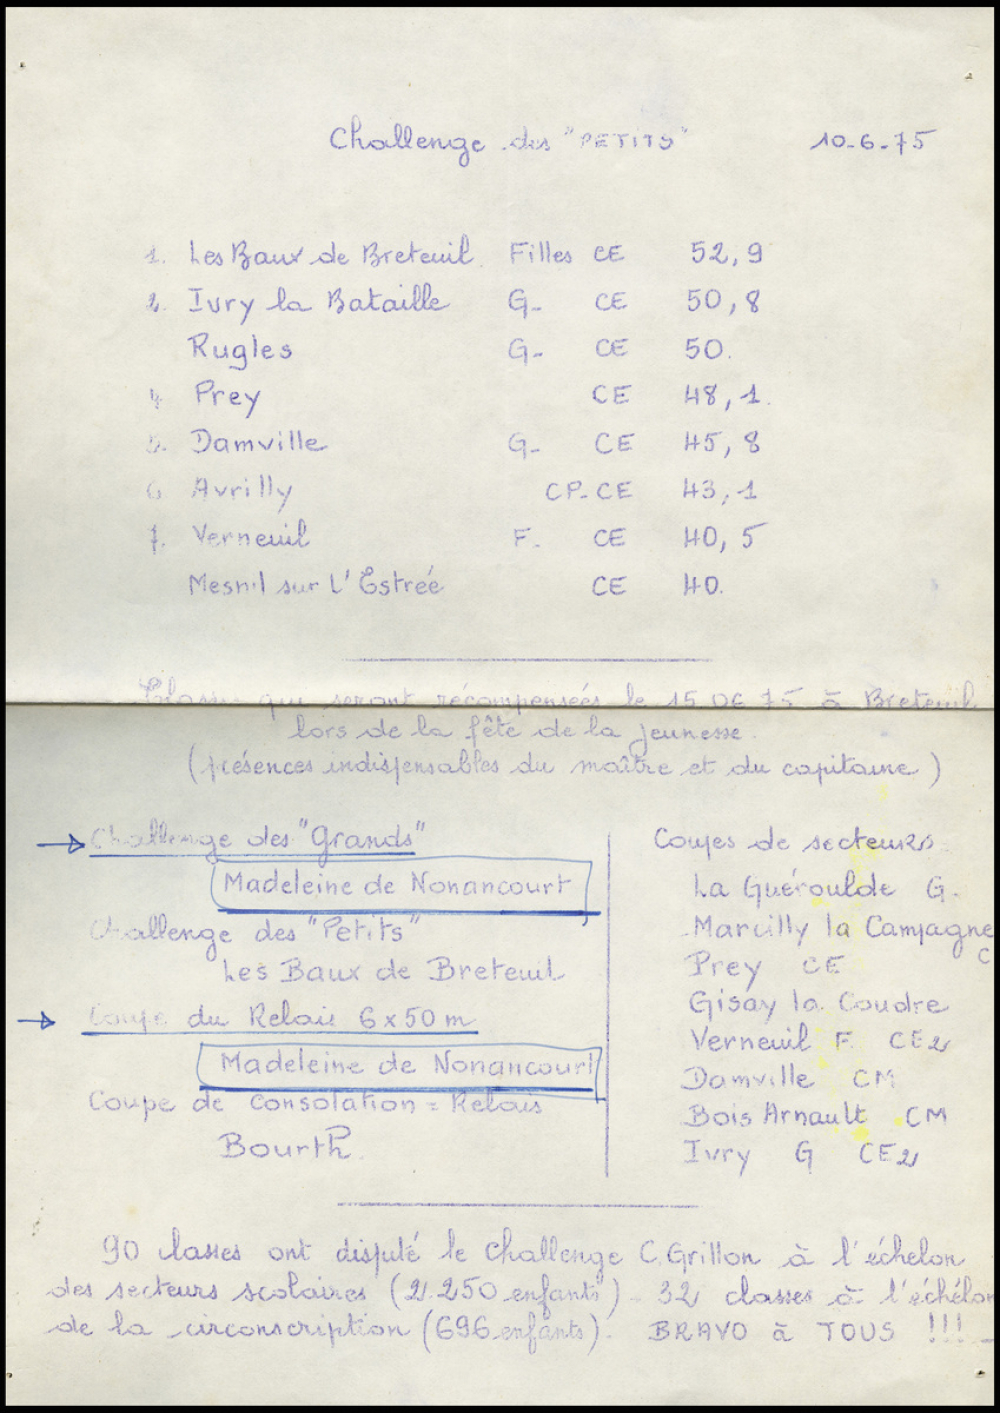 Challenge des "PETITS" 10-6-75
1. Les Baux de Breteuil Filles CE 52,9
2. Ivry la Bataille G- CE 50,8
Rugles G- CE 50.
4. Prey CE 48,1.
5. Damville G- CE 45,8
6 Avrilly CP-CE 43,1
7. Verneuil F. CE 40,5
Mesnil sur L'Estrée CE 40.
Classes qui seront récompensées le 15 06 75 à Breteuil
lors de la fête de la jeunesse.
(présences indispensables du maître et du capitaine)
Challenge des "Grands"
Madeleine de Nonancourt
Challenge des "Petits"
Les Baux de Breteuil
Coupe du Relais 6x50m
Madeleine de Nonancourt
Coupe de consolation = Relais
Bourth
Coupes de secteurs
La Guéroulde G.
Marcilly la Campagne
C
Prey CE
Gisay la Coudre
Verneuil F CE2
Damville CM
Bois Arnault CM
Ivry G CE2
90 classes ont disputé le challenge C.Grillon à l'échelon
des secteurs scolaires (2.250 enfants) - 32 classes à l'échélon
de la circonscription (696 enfants). BRAVO à TOUS !!!